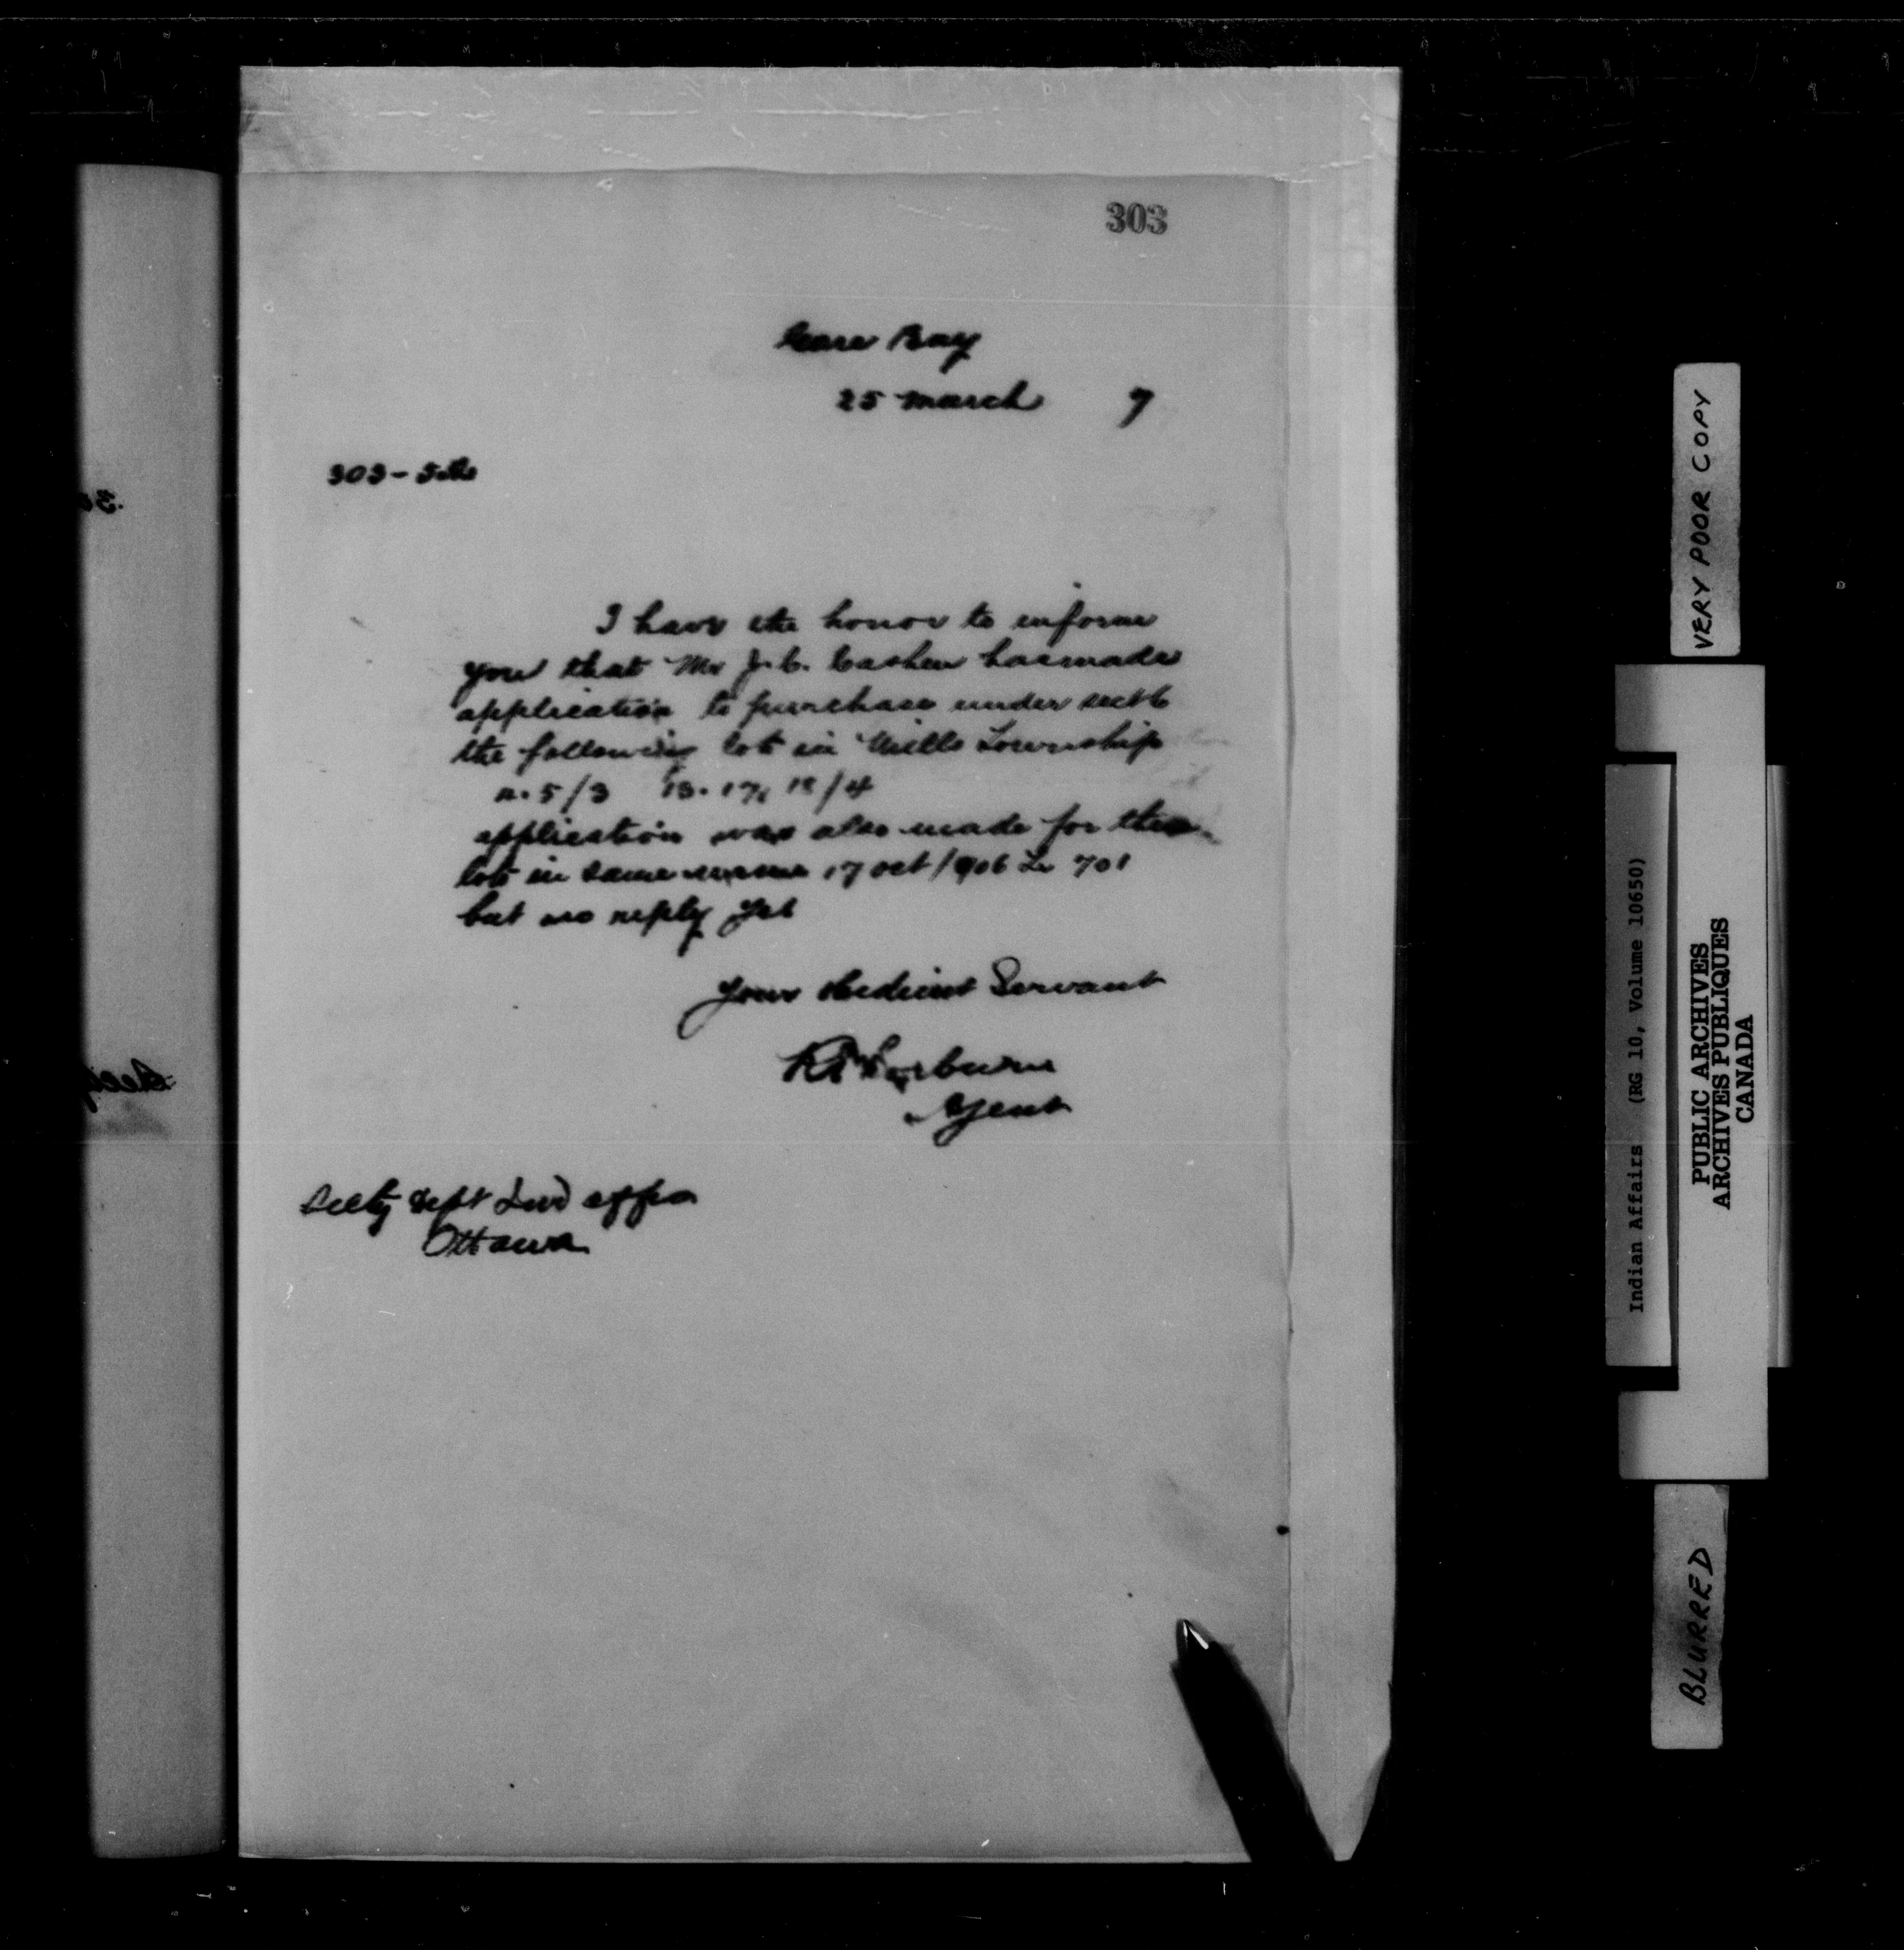 303
Gore Bay
25 march 7
303-
I have the honor to inform
you that Mr J.C. Cashen has made
application to purchase under sect 6
the following lots in Mills Township
n. 5/3 13. 17, 18/4
application was also made for these
lots in same 17 oct 1906 Lr 701
but no reply yet
Your obedient Servant
Agent
Secty Dept Ind affrs
Ottawa
VERY POOR COPY
Indian Affairs (RG 10, Volume 10650)
PUBLIC ARCHIVES
ARCHIVES PUBLIQUES
CANADA
BLURRED